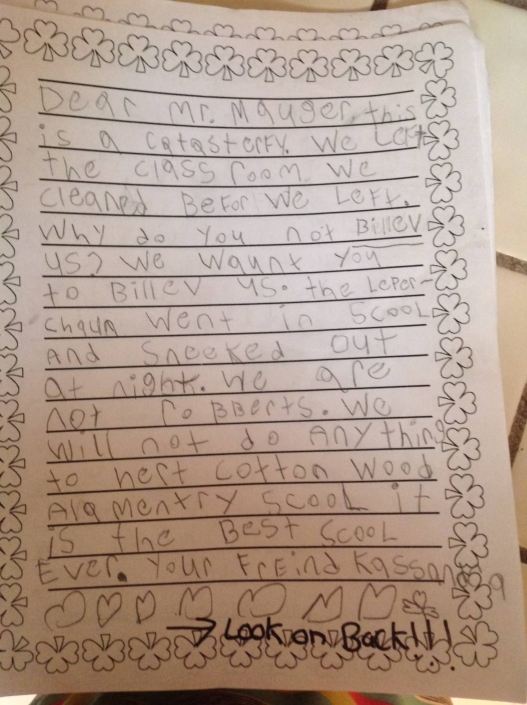 Dear Mr. Mauger, this
is a catasterfy. We Left
the class room We
cleaned Befor We Left.
Why do you not Billev
us? We waunt you
to Billev us. the Leper-
chaun went in Scool
And Sneeked out
at night. We are
not robberts. We
Will not do Anything
to hert cotton wood
Alamentry Scool it
is the Best Scool
Ever. Your Freind
→ Look on Back!!!